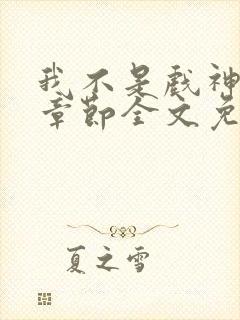 我不是戏神
章节全文免
夏之雪